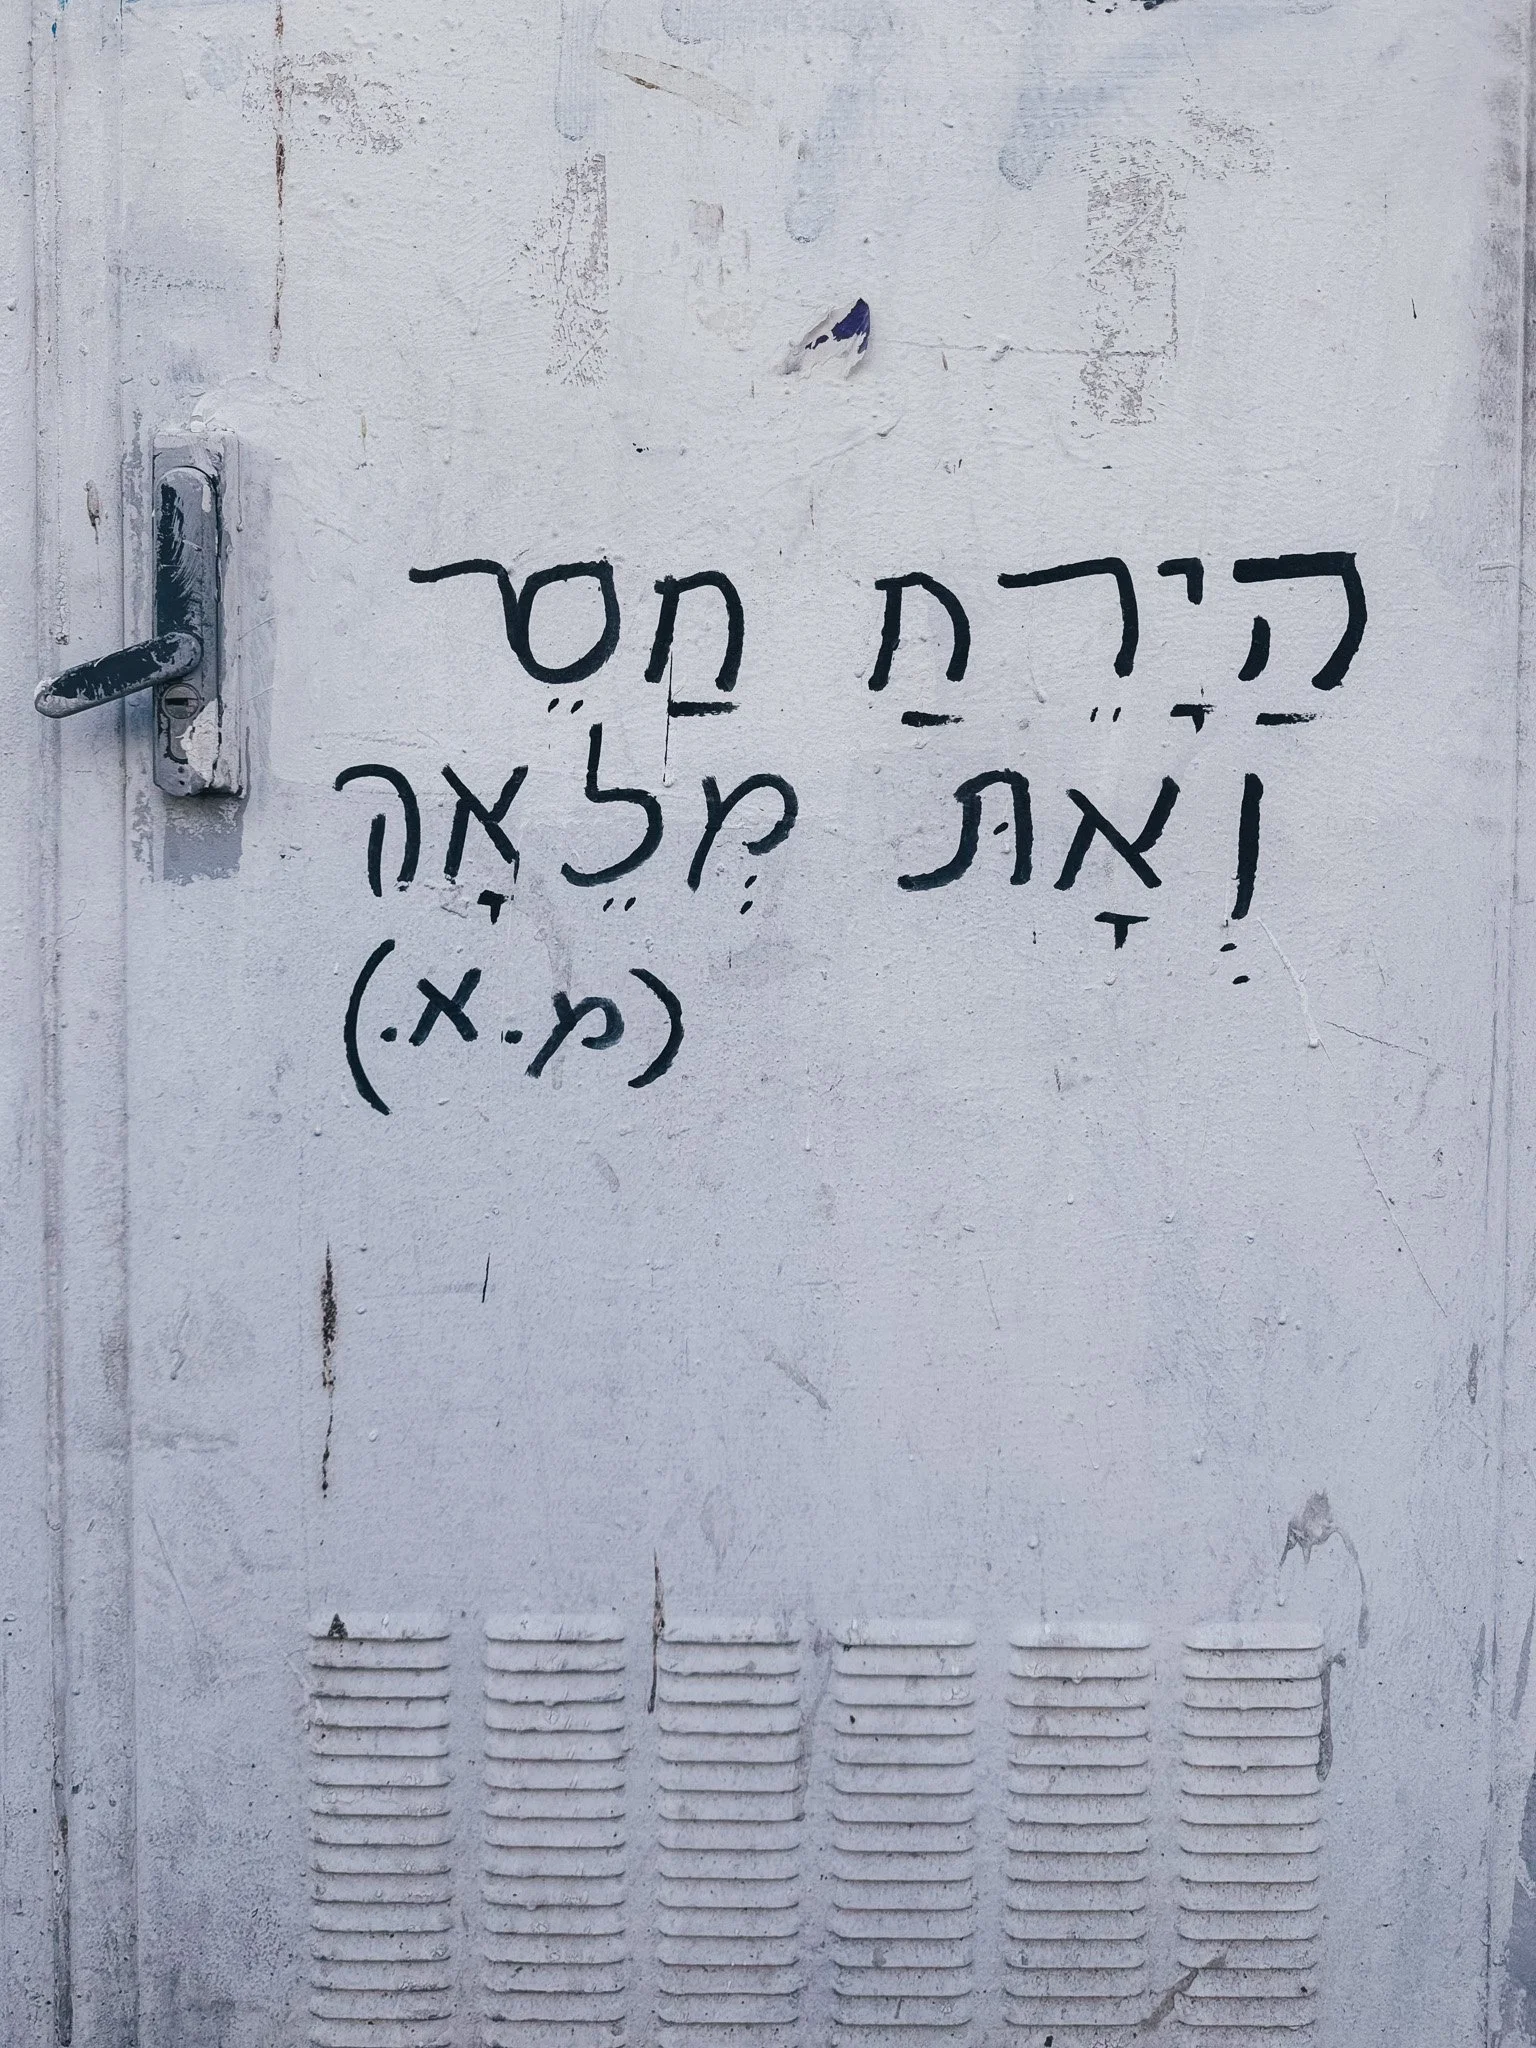 הַיָרֵחַ חַסֵר
וְאָתּ מְלֵאָה
(מ.א.)